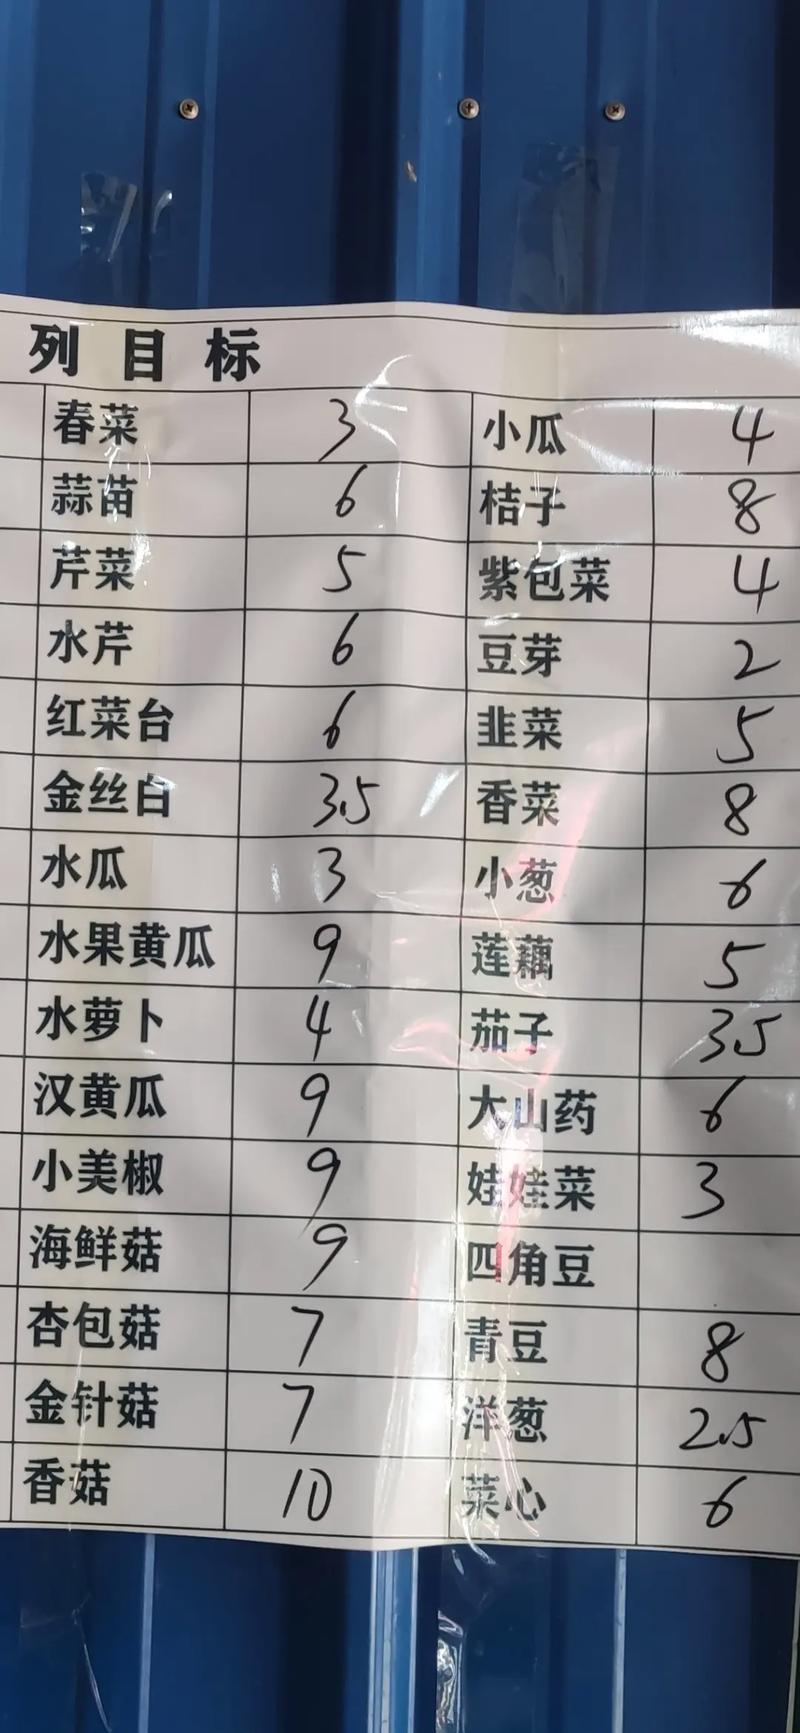 列目标
春菜 3 小瓜 4
蒜苗 6 桔子 8
芹菜 5 紫包菜 4
水芹 6 豆芽 2
红菜台 6 韭菜 5
金丝白 3.5 香菜 8
水瓜 3 小葱 6
水果黄瓜 9 莲藕 5
水萝卜 4 茄子 3.5
汉黄瓜 9 大山药 6
小美椒 9 娃娃菜 3
海鲜菇 9 四角豆
杏包菇 7 青豆 8
金针菇 7 洋葱 2.5
香菇 10 菜心 6